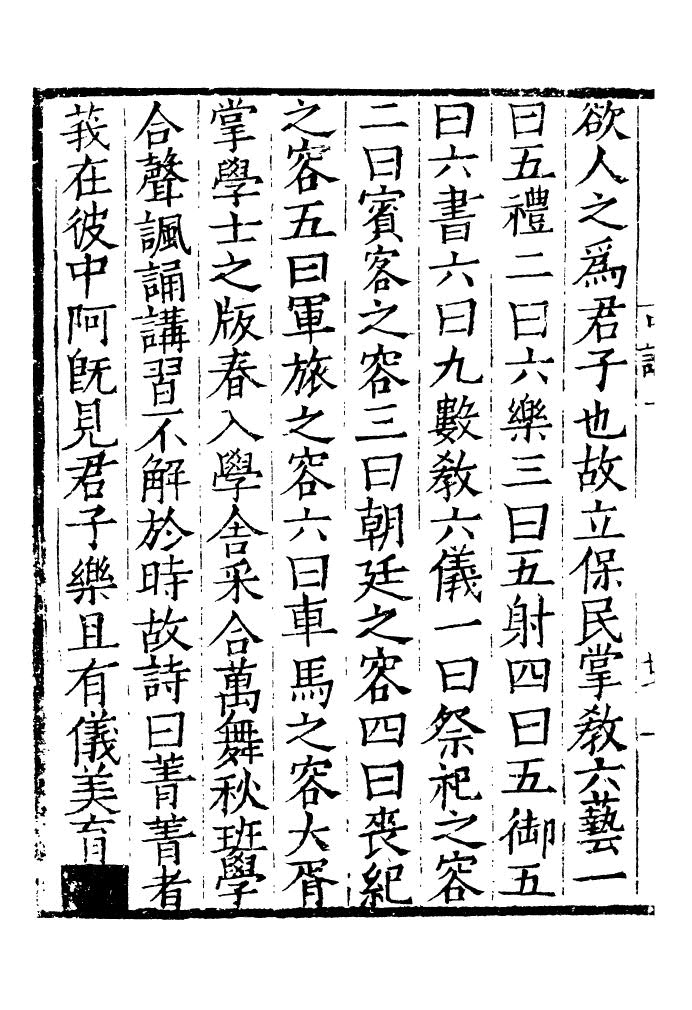 欲人之爲君子也故立保民掌教六藝一
曰五禮二曰六樂三曰五射四曰五御五
曰六書六曰九數教六儀一曰祭祀之容
二曰賓客之容三曰朝廷之容四曰喪紀
之容五曰軍旅之容六曰車馬之容大胥
掌學士之版春入學舍采合萬舞秋班學
合聲諷誦講習不解於時故詩曰菁菁者
莪在彼中阿旣見君子樂且有儀美育